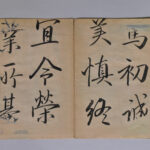 篤初誠
美慎終
宜令榮
業所基